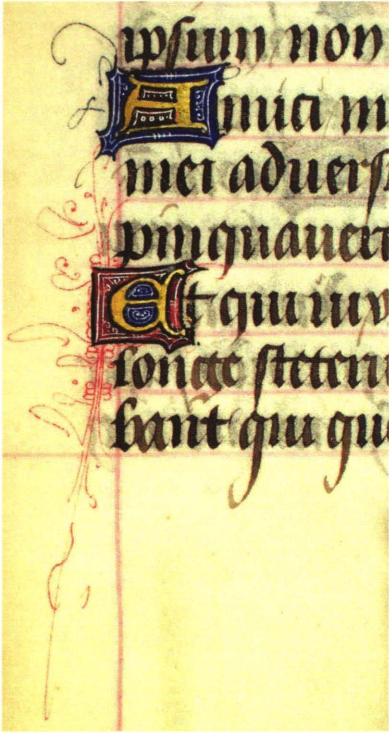 ipsum non
Amici m
mei advers
pinquaver
Et qui iux
longe steteru
bant qui que